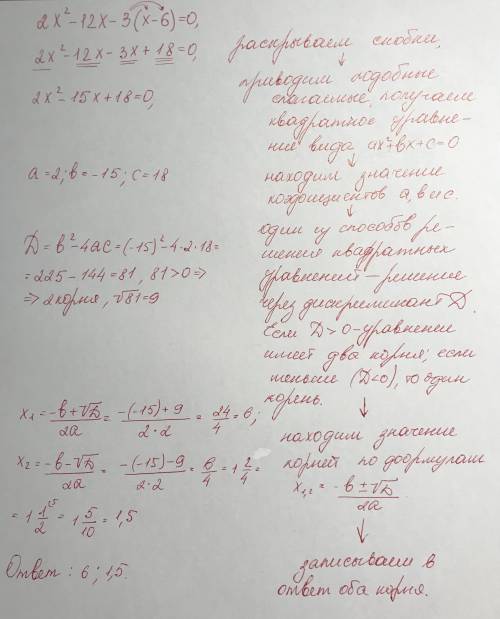 2x²-12x-3(x-6)=0,
2x²-12x-3x+18=0,
2x²-15x+18=0,
a=2; b=-15; c=18
D=b²-4ac=(-15)²-4·2·18=
=225-144=81, 81>0=>
=> 2 корня, √81=9
x₁=(-b+√D)/2a=(-(-15)+9)/(2·2)=24/4=6;
x₂=(-b-√D)/2a=(-(-15)-9)/(2·2)=6/4=1 2/4=
=1 1/2 ⁵=1 5/10=1,5
Ответ: 6; 1,5.
раскрываем скобки,
↓
приводим подобные
слагаемые, получаем
квадратное уравне-
ние вида ax²+bx+c=0
↓
находим значение
коэфициентов a, b и c.
↓
один из способов ре-
шения квадратных
уравнений-решение
через дискриминант D.
Если D>0-уравнение
имеет два корня; если
меньше (D<0), то один
корень.
↓
находим значение
корней по формулам
x₁,₂=(-b±√D)/2a
↓
записываем в
ответ оба корня.